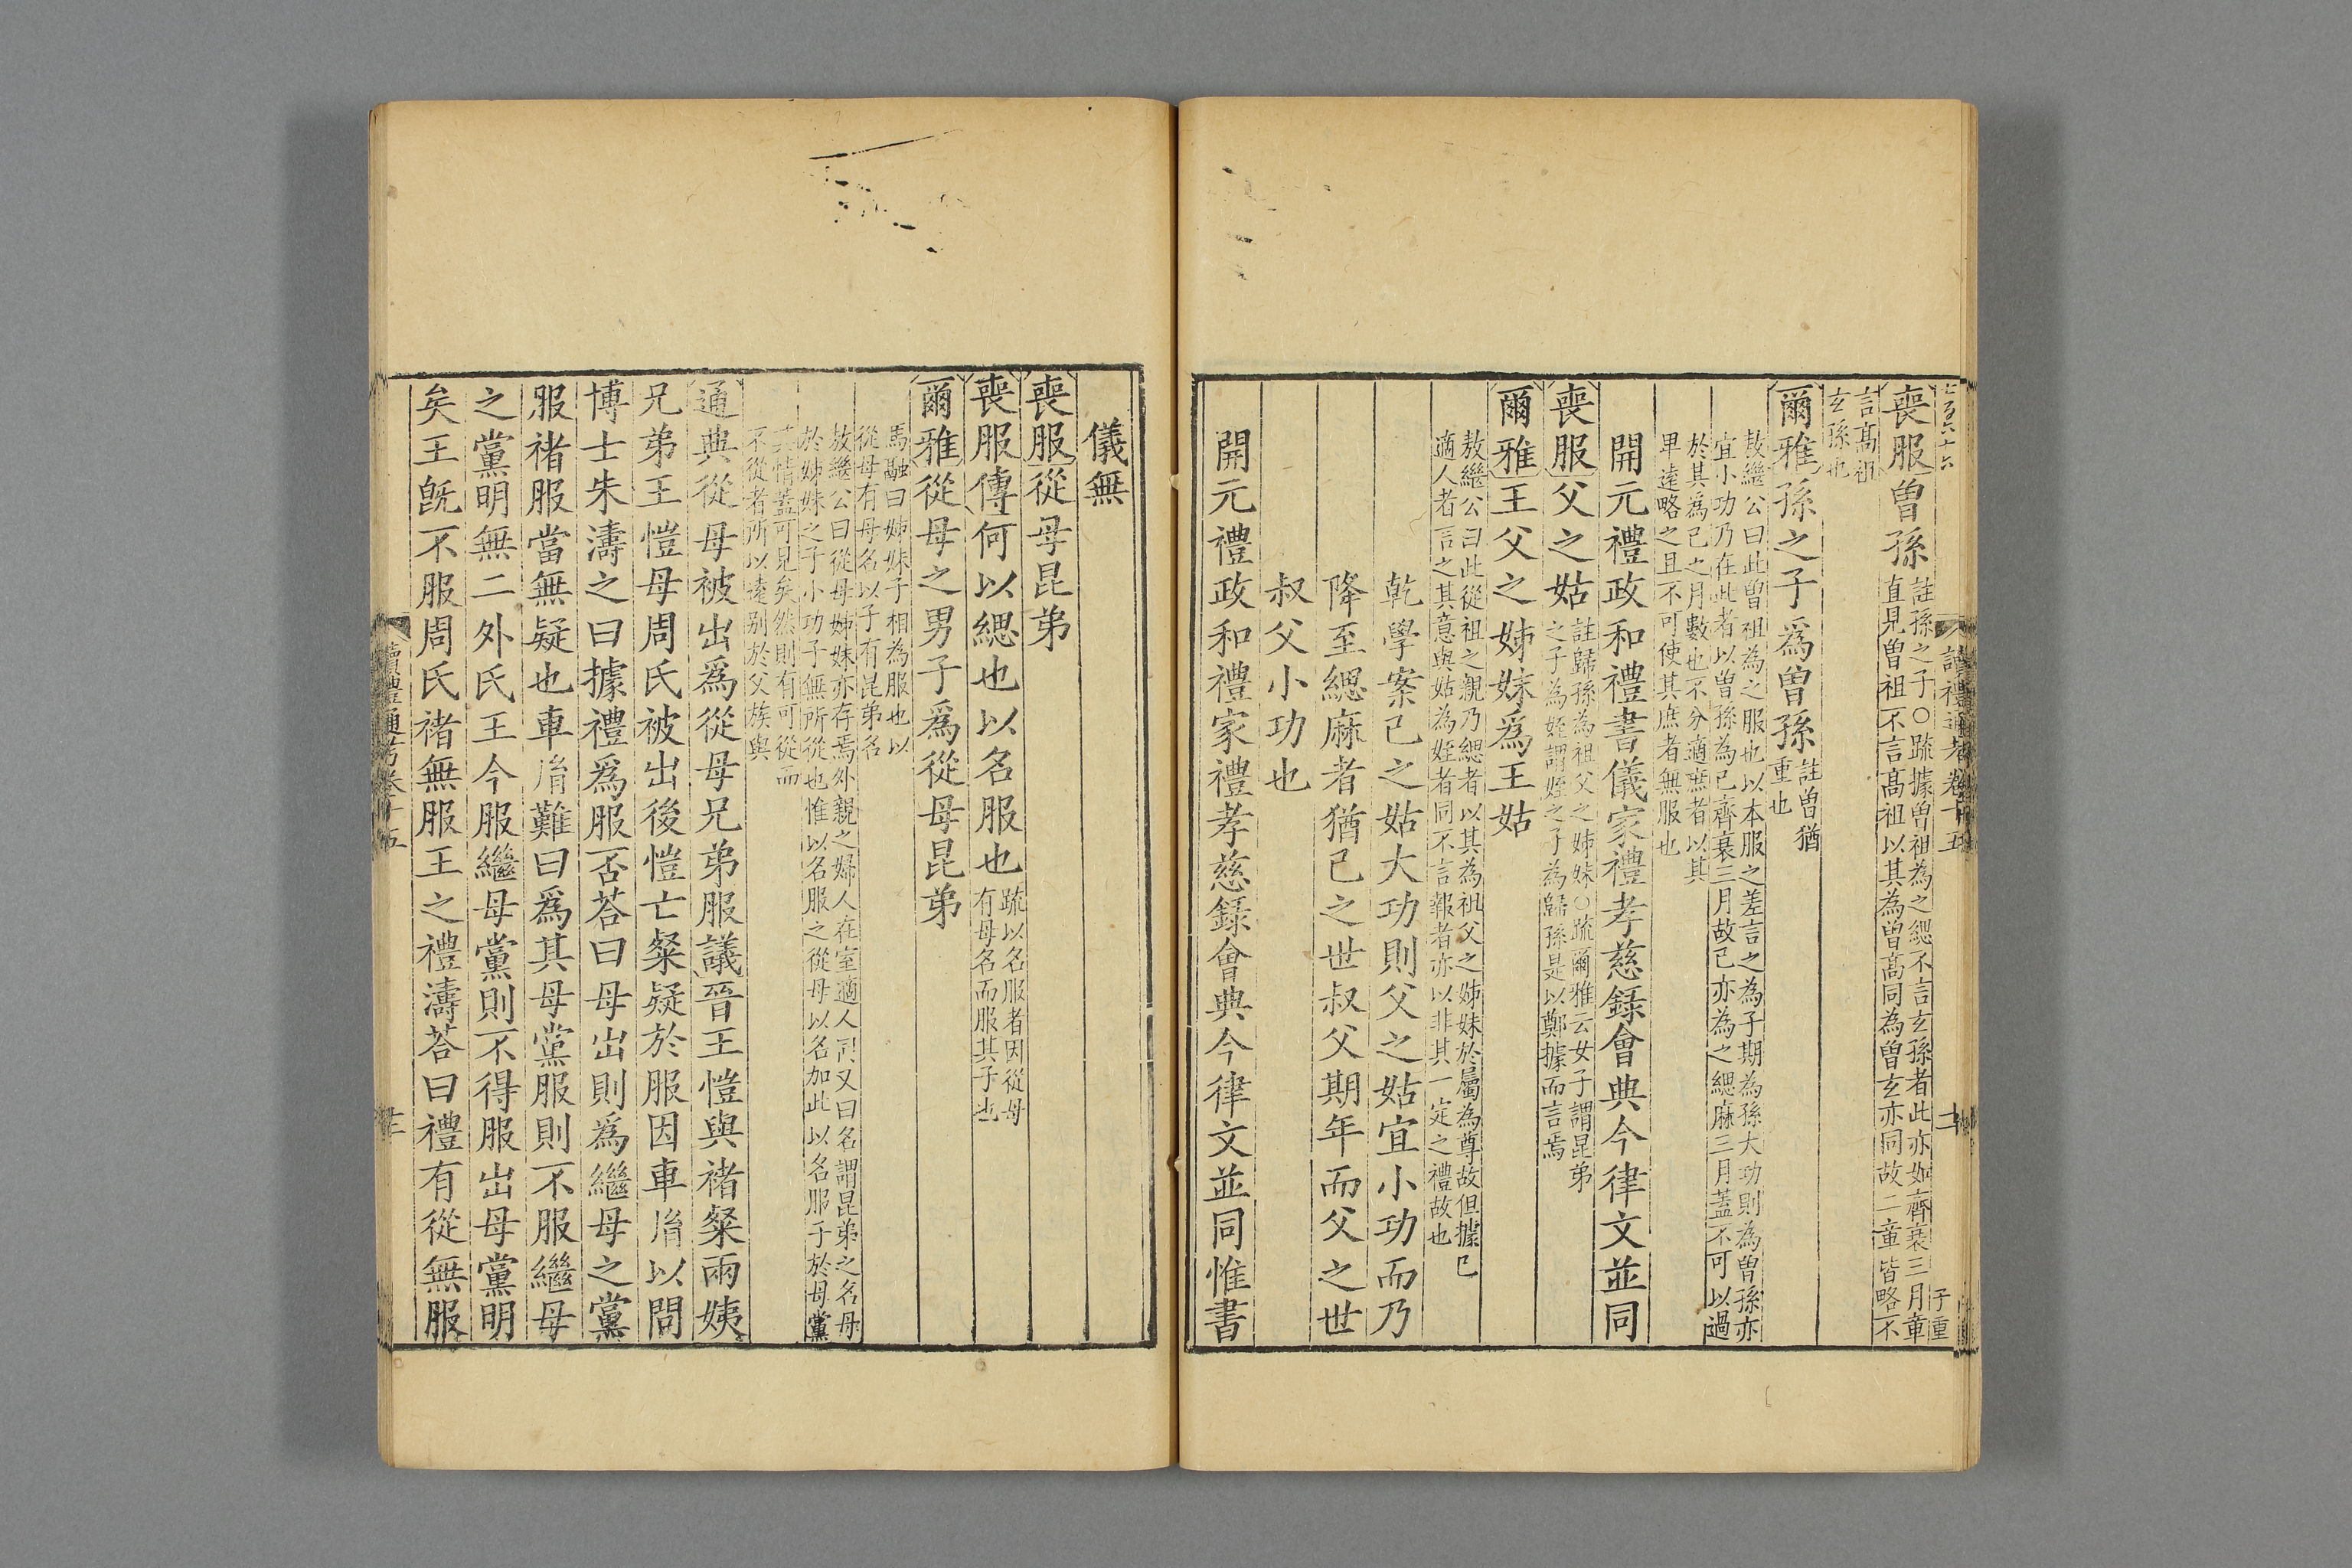 喪服曽孫註孫之子○䟽據曽祖為之緦不言玄孫者此亦如齊衰三月章
直見曽祖不言髙祖以其為曽髙同為曽玄亦同故二章皆略不
言髙祖
玄孫也
爾雅孫之子爲曽孫註曽猶
重也
敖繼公曰此曽祖為之服也以本服之差言之為子期為孫大功則為曽孫亦
宜小功乃在此者以曽孫為己齊衰三月故己亦為之緦麻三月蓋不可以過
於其為己之月數也不分適庶者以其
卑逺略之且不可使其庶者無服也
開元禮政和禮書儀家禮孝慈錄會典今律文並同
喪服父之姑註歸孫為祖父之姊妹○䟽爾雅云女子謂昆弟
之子為姪謂姪之子為歸孫是以鄭據而言焉
爾雅王父之姊妹爲王姑
敖繼公曰此從祖之親乃緦者以其為祖父之姊妹於屬為尊故但據已
適人者言之其意與姑為姪者同不言報者亦以非其一定之禮故也
乾學案己之姑大功則父之姑宜小功而乃
降至緦麻者猶己之世叔父期年而父之世
叔父小功也
開元禮政和禮家禮孝慈錄會典今律文並同惟書
儀無
喪服從母昆弟
喪服傳何以緦也以名服也䟽以名服者因從母
有母名而服其子也
爾雅從母之男子爲從母昆弟
馬融曰姊妹子相為服也以
從母有母名以子有昆弟名
敖繼公曰從母姊妹亦存焉外親之婦人在室適人同又曰名謂昆弟之名母
於姊妹之子小功子無所從也惟以名服之從母以名加此以名服子於母黨
其情蓋可見矣然則有可從而
不從者所以逺别於父族與
通典從母被出爲從母兄弟服議晉王愷與褚粲兩姨
兄弟王愷母周氏被出後愷亡粲疑於服因車㣧以問
博士朱濤之曰據禮爲服否荅曰母出則爲繼母之黨
服褚服當無疑也車㣧難曰爲其母黨服則不服繼母
之黨明無二外氏王今服繼母黨則不得服出母黨明
矣王旣不服周氏褚無服王之禮濤荅曰禮有從無服
讀禮通考卷十五